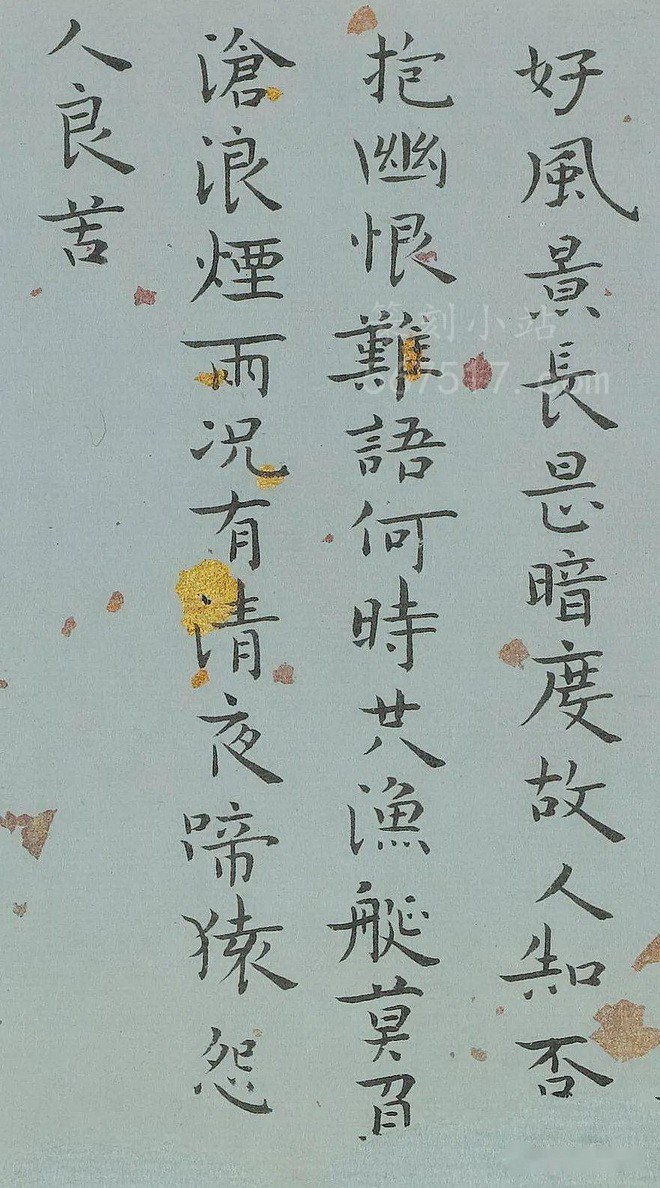 好風景長是暗度故人知否
抱幽恨難語何時共漁艇莫負
滄浪煙雨況有清夜啼猿怨
人良苦
篆刻小站